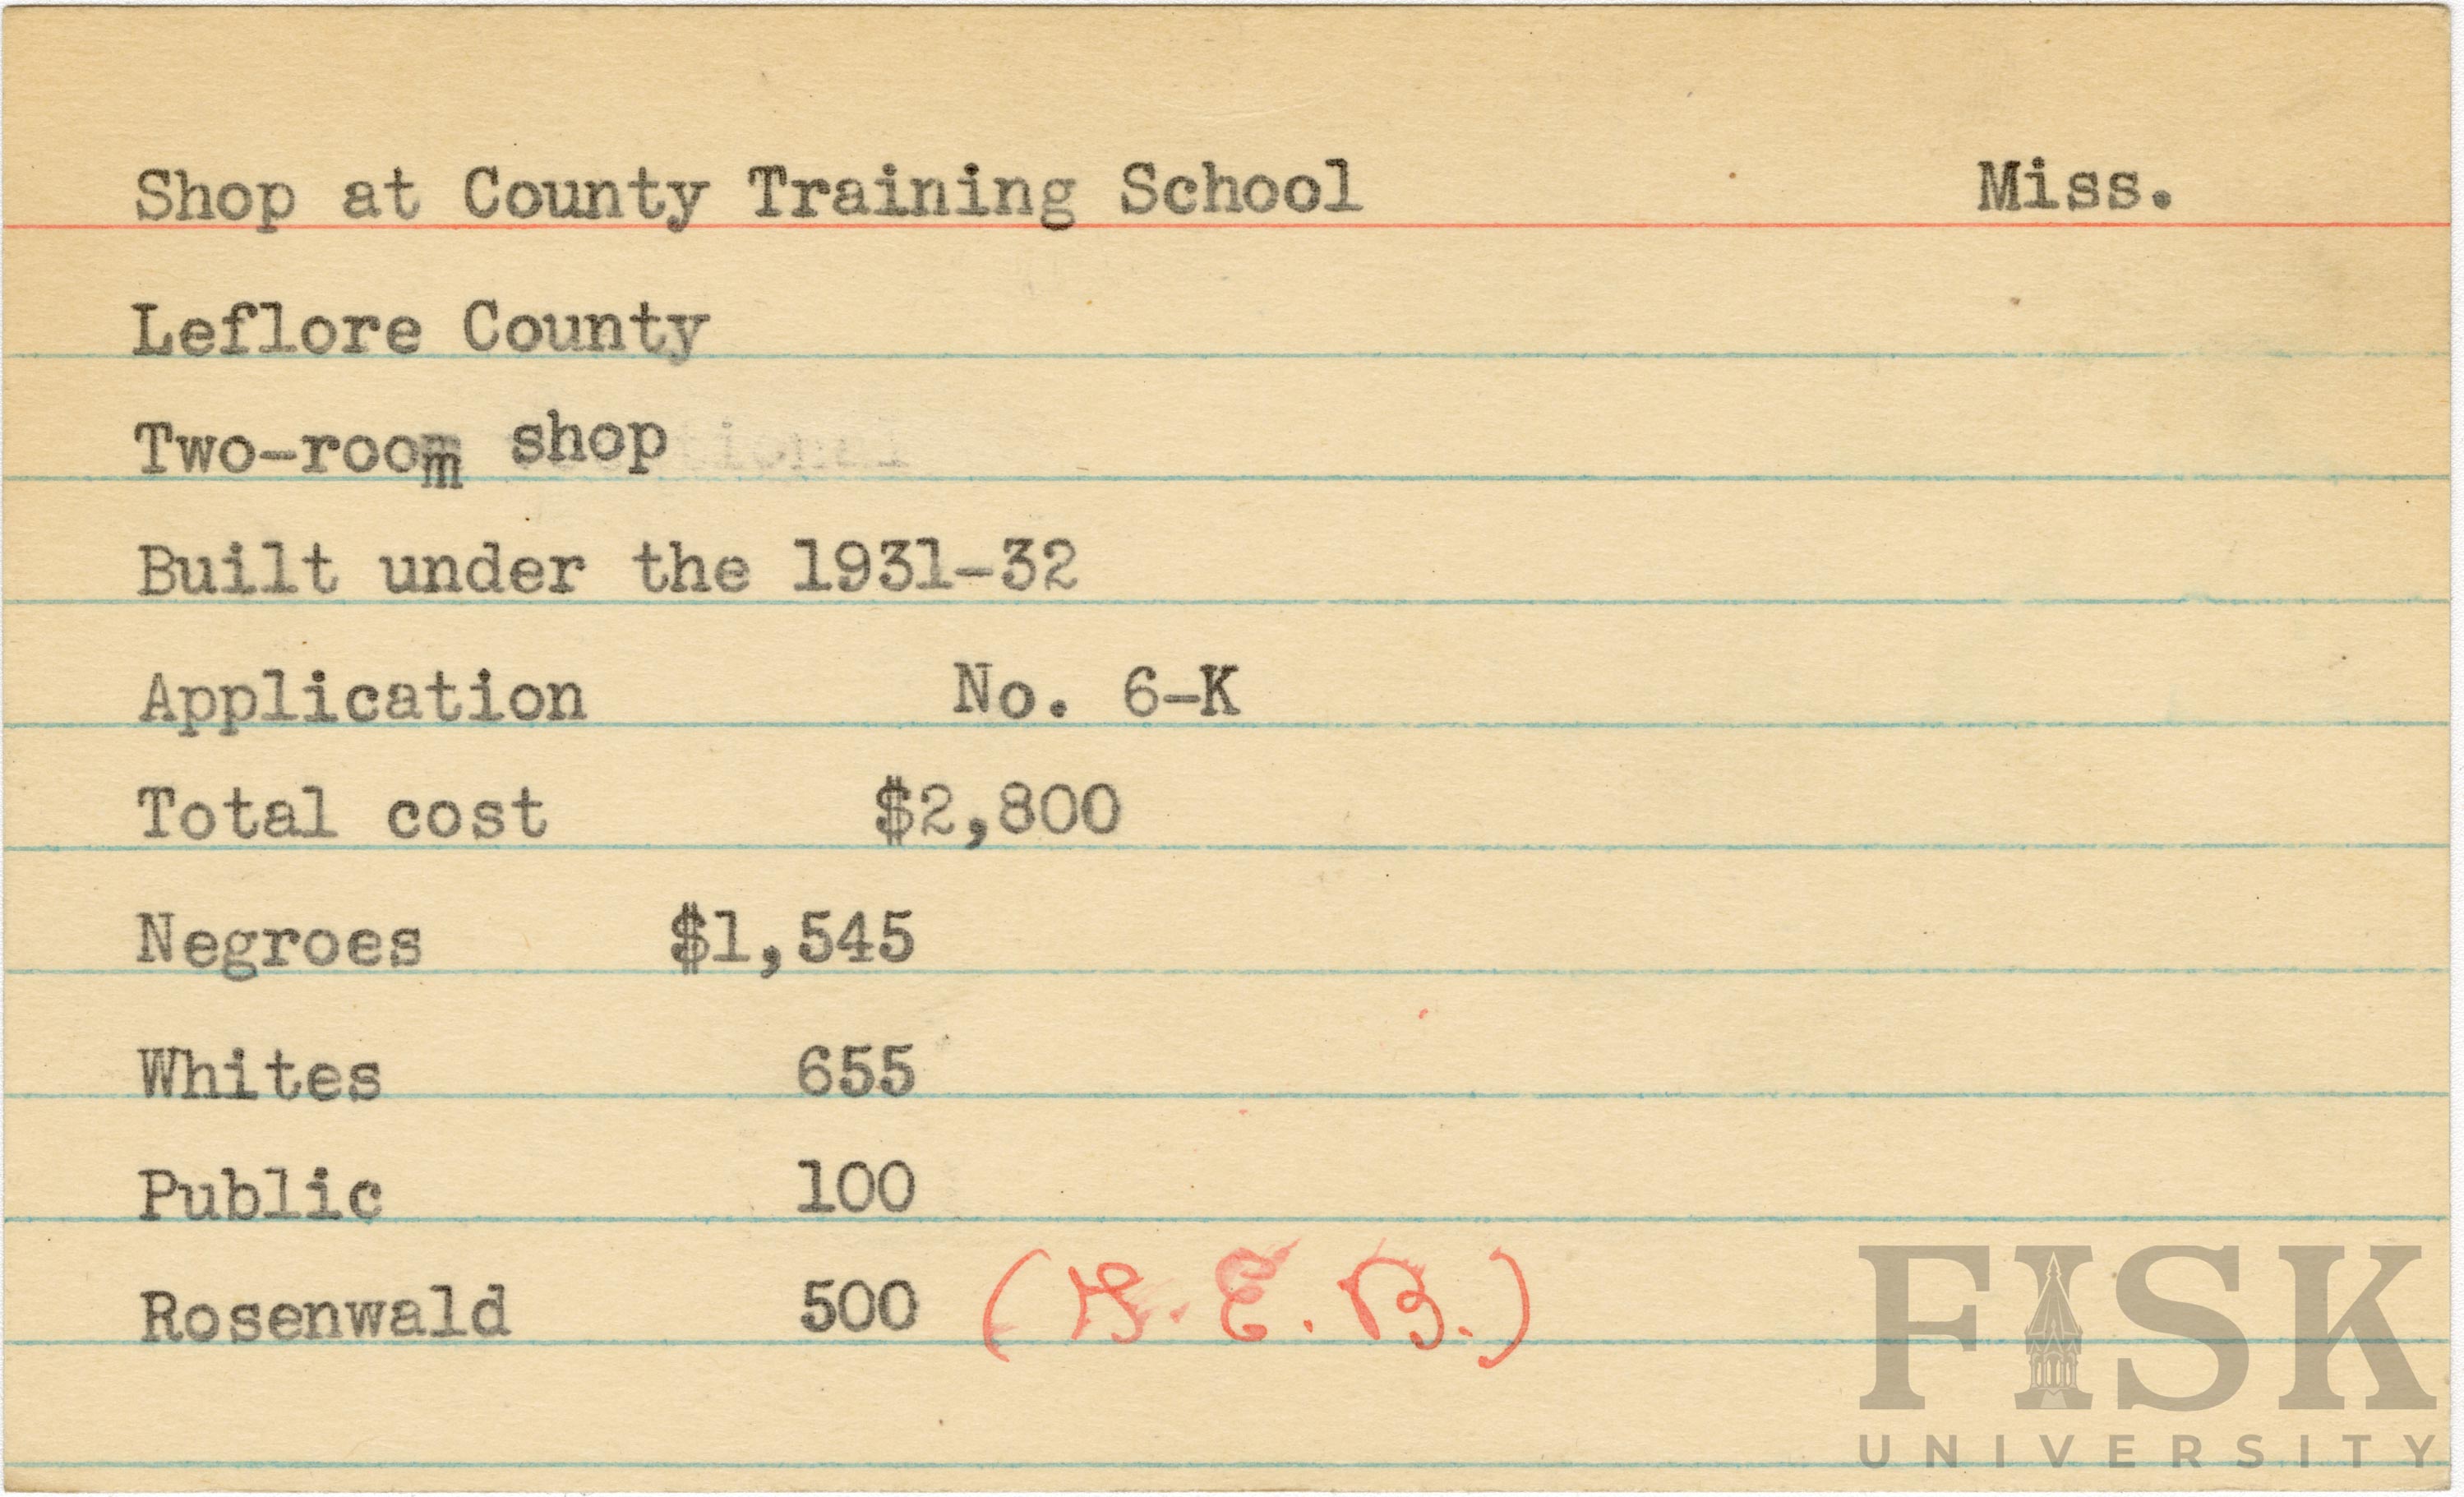 Shop at County Training School Miss.
Leflore County
Two-room shop
Built under the 1931-32
Application No. 6-K
Total cost $2,800
Negroes $1,545
Whites 655
Public 100
Rosenwald 500 (G.E.B.)
FISK
UNIVERSITY